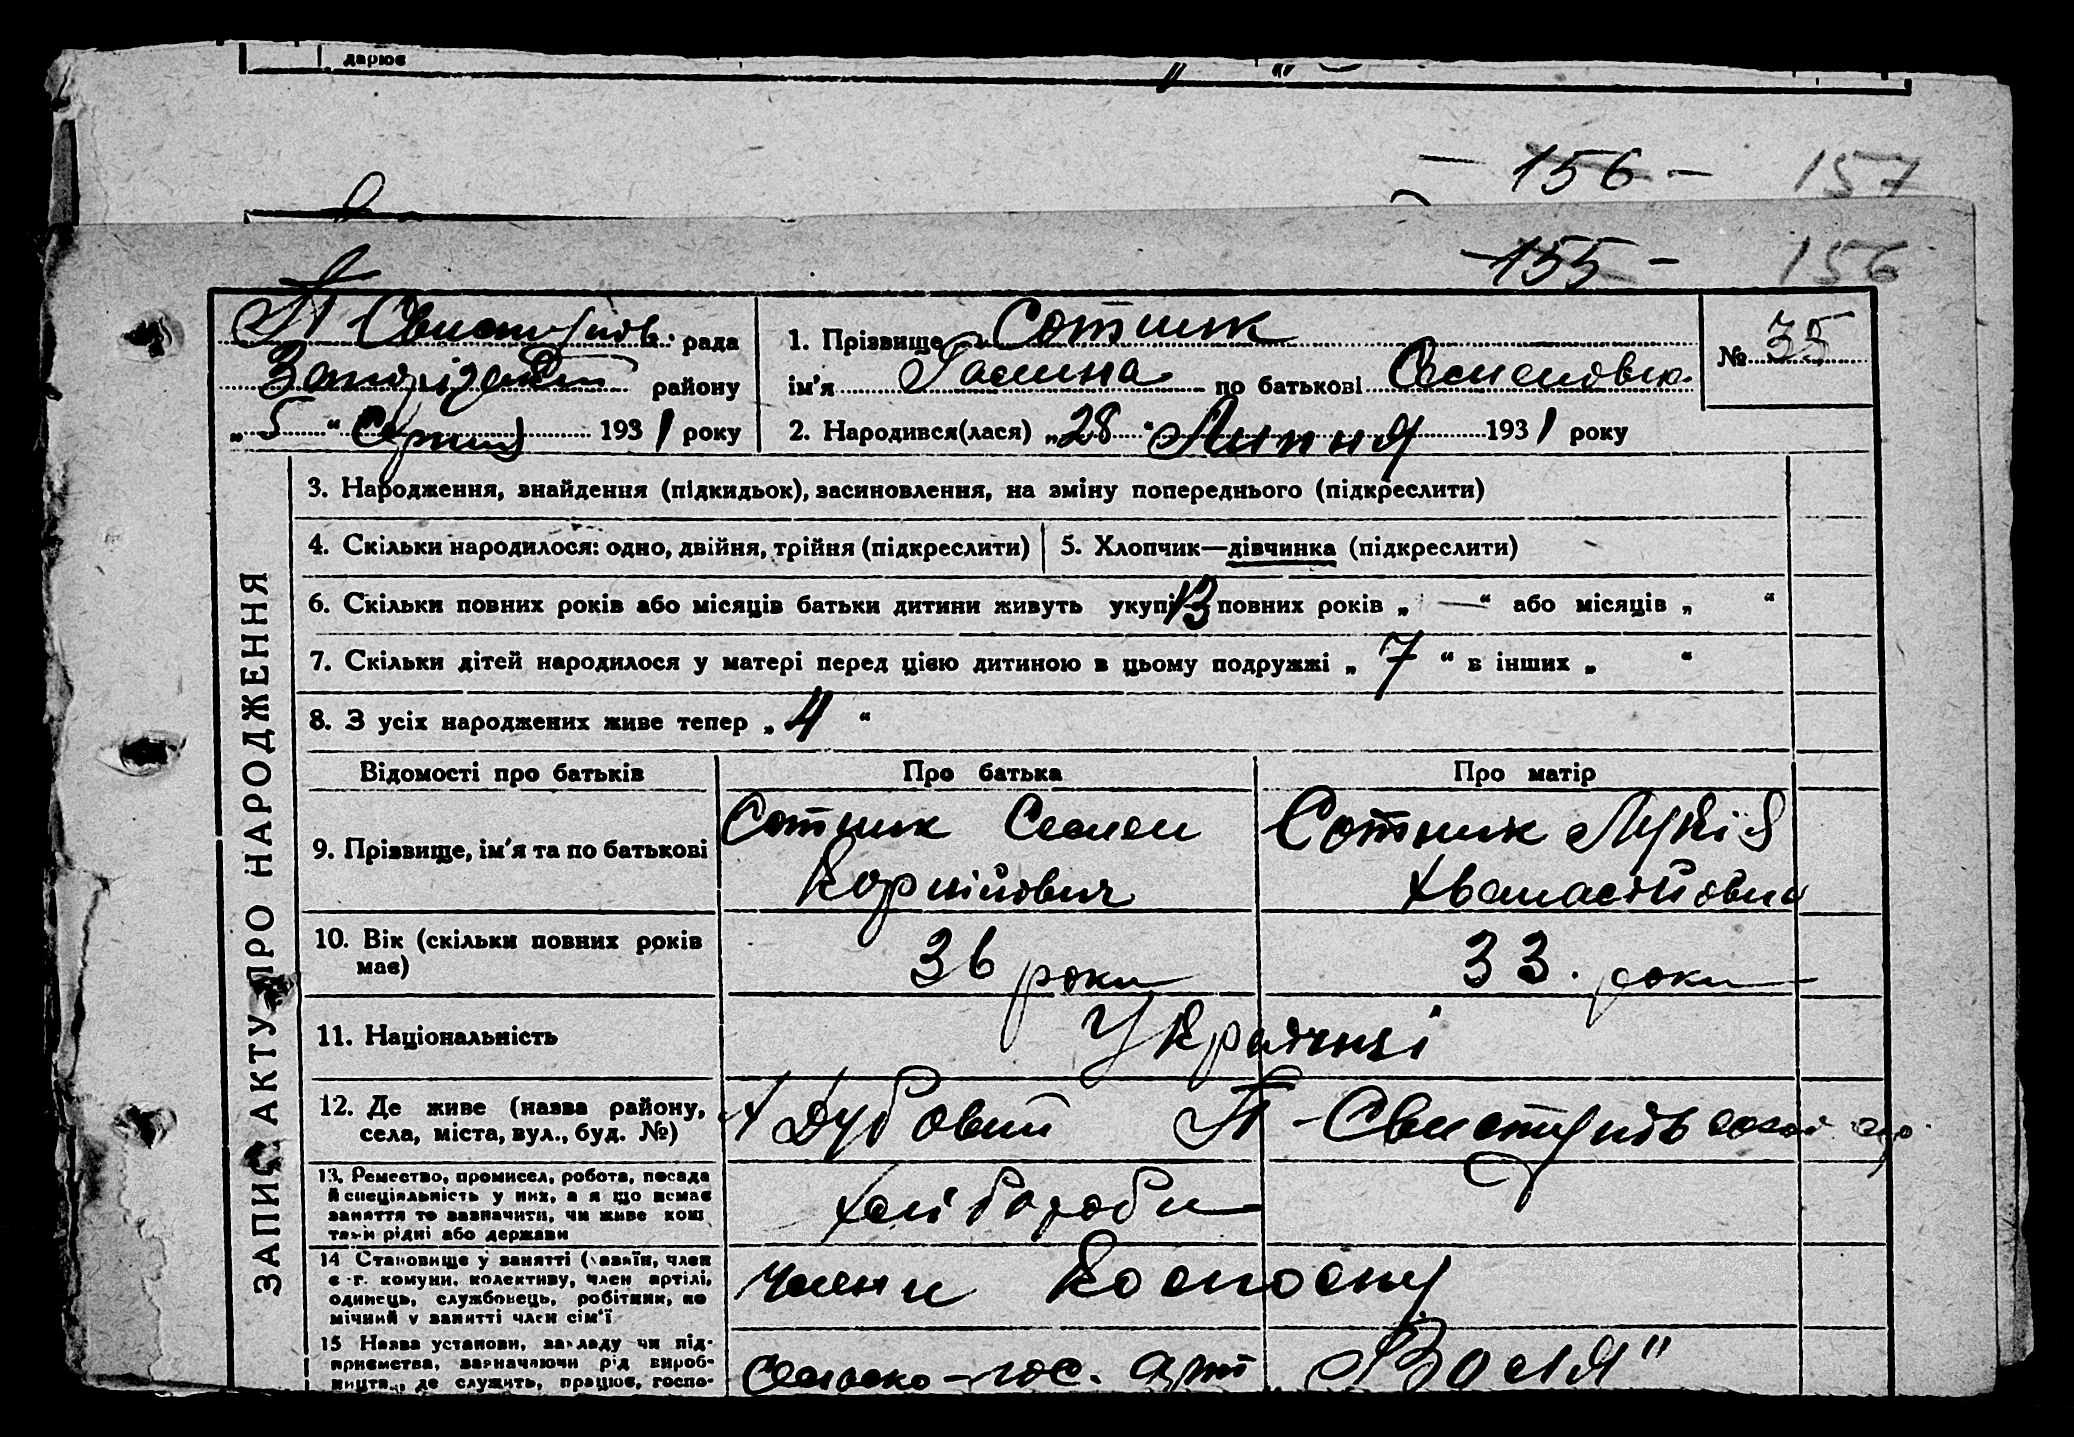 дарює
— 156 — 157
— 155 — 156
П-Свистунівс. рада
району
„ 5 “ Серпня 1931 року
1. Прізвище Сотник
ім'я Галина по батькові Семеновна
2. Народився(лася) „28“ Липня 1931 року
№ 35
ЗАПИС АКТУ ПРО НАРОДЖЕННЯ
3. Народження, знайдення (підкидьок), засиновлення, на зміну попереднього (підкреслити)
4. Скільки народилося: одно, двійня, трійня (підкреслити) 5. Хлопчик—дівчинка (підкреслити)
6. Скільки повних років або місяців батьки дитини живуть укупі 13 повних років „ — “ або місяців „ “
7. Скільки дітей народилося у матері перед цією дитиною в цьому подружжі „ 7 “ в інших „ “
8. З усіх народжених живе тепер „ 4 “
Відомості про батьків Про батька Про матір
9. Прізвище, ім'я та по батькові
Сотник Семен
Корнійович
Сотник Лукія
Хванасійовна
10. Вік (скільки повних років
має)
36 роки 33. роки
11. Національність Українці
12. Де живе (назва району,
села, міста, вул., буд. №)
х Дубовий П-Свистунівської
13. Ремество, промисел, робота, посада
й спеціяльність у них, а я що немає
заняття то зазначити, чи живе кошт
тами рідні або держави
хлібороби
14 Становище у занятті (хазяїн, член
с.-г. комуни, колективу, член артілі,
одинець, службовець, робітник, по
мічний у занятті член сім'ї
члени колгоспу
15 Назва установи, закладу чи під-
приємства, зазначаючи рід вироб-
ництва, де служить, працює, госпо-
Сельско-гос. арт „Воля"